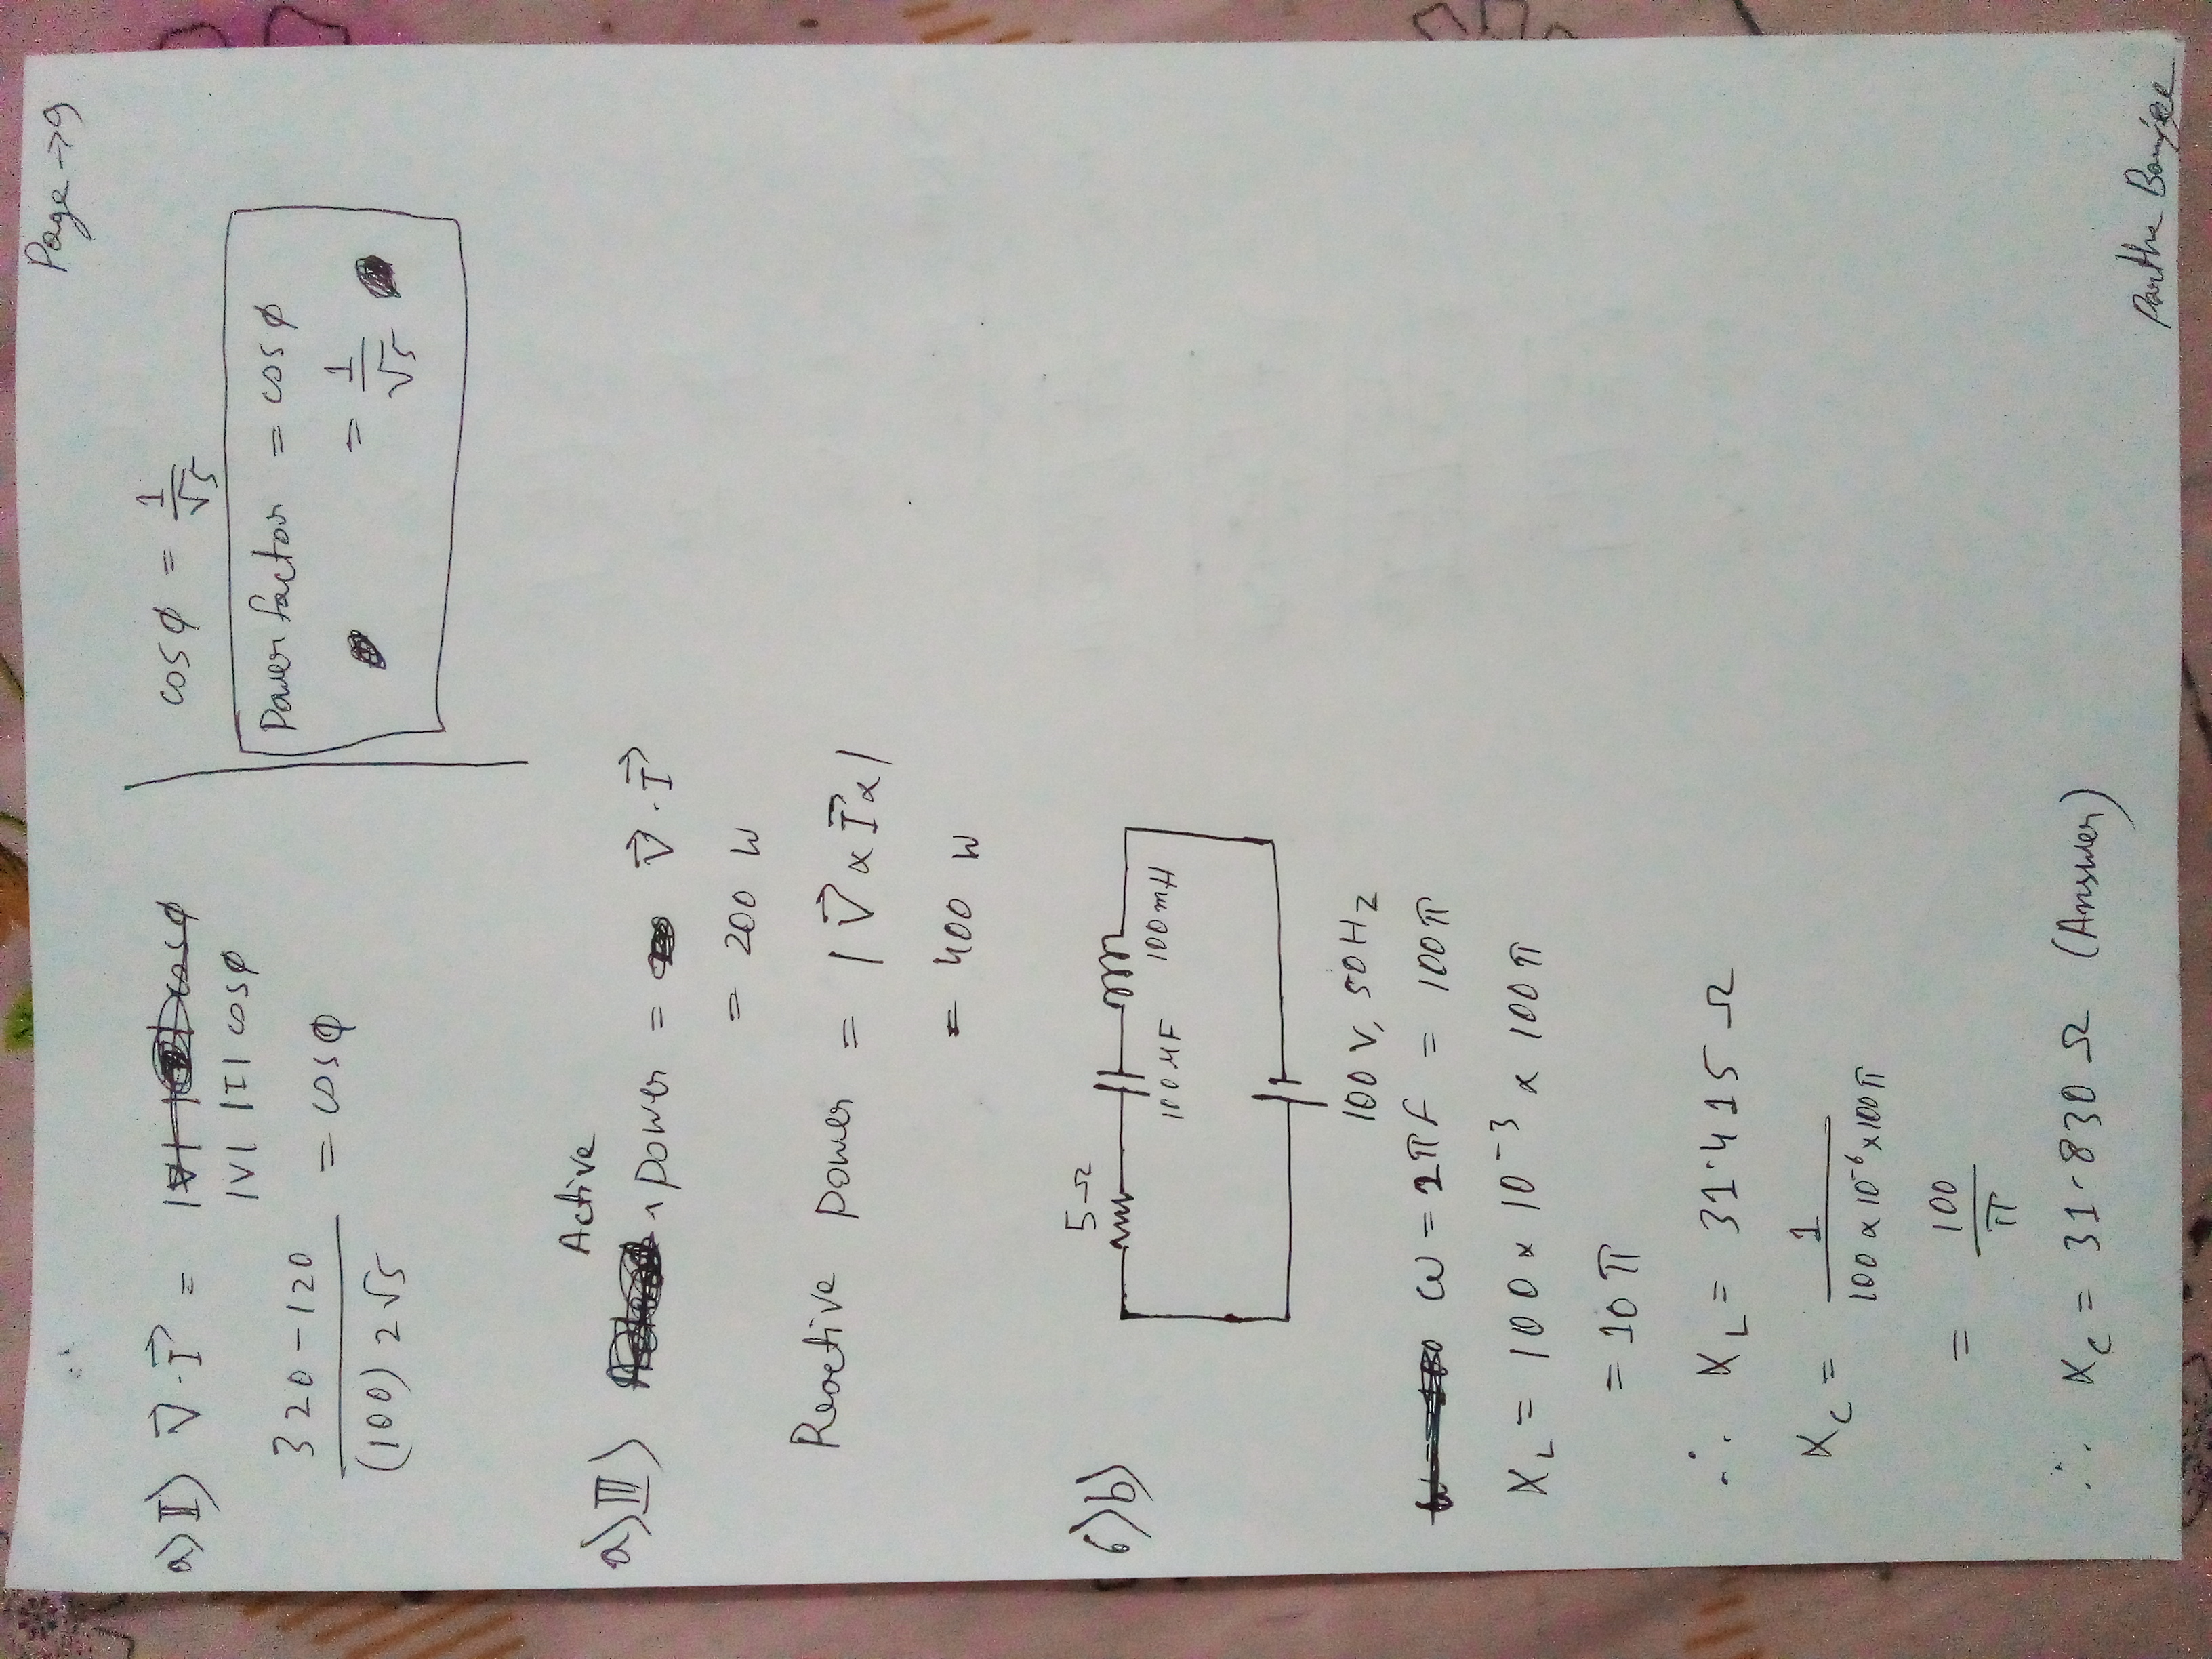 Page →9
a) II) V⃗ · I⃗ =
|V| |I| cosφ
320 - 120 / (100) 2√5 = cosφ
cosφ = 1/√5
Power factor = cosφ
= 1/√5
a) III) Active power = V⃗ · I⃗
= 200 W
Reactive power = | V⃗ × I⃗ × |
= 400 W
6) b)
5Ω
100 μF 100 mH
100 V, 50 Hz
ω = 2πf = 100π
X_L = 100 × 10⁻³ × 100π
= 10π
∴ X_L = 31·415 Ω
X_C = 1 / 100 × 10⁻⁶ × 100π
= 100/π
∴ X_C = 31·830 Ω (Answer)
Partha